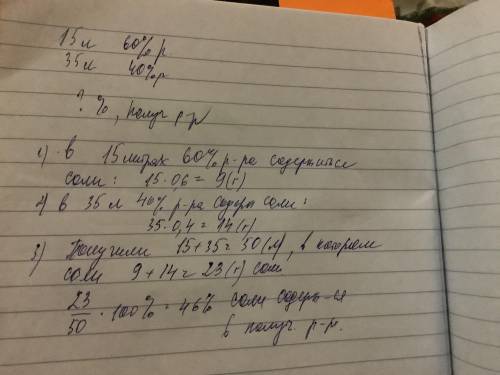 15 л 60% р
35 л 40% р
? %, получ р-р
1) в 15 литрах 60% р-ра содержится
соли: 15·0,6 = 9 (г)
2) в 35 л 40% р-ра содерж соли:
35·0,4 = 14 (г)
3) Получили 15+35=50 (л), в котором
соли 9+14=23 (г) соли
23/50 · 100% = 46% соли содерж-ся
в получ. р-р.